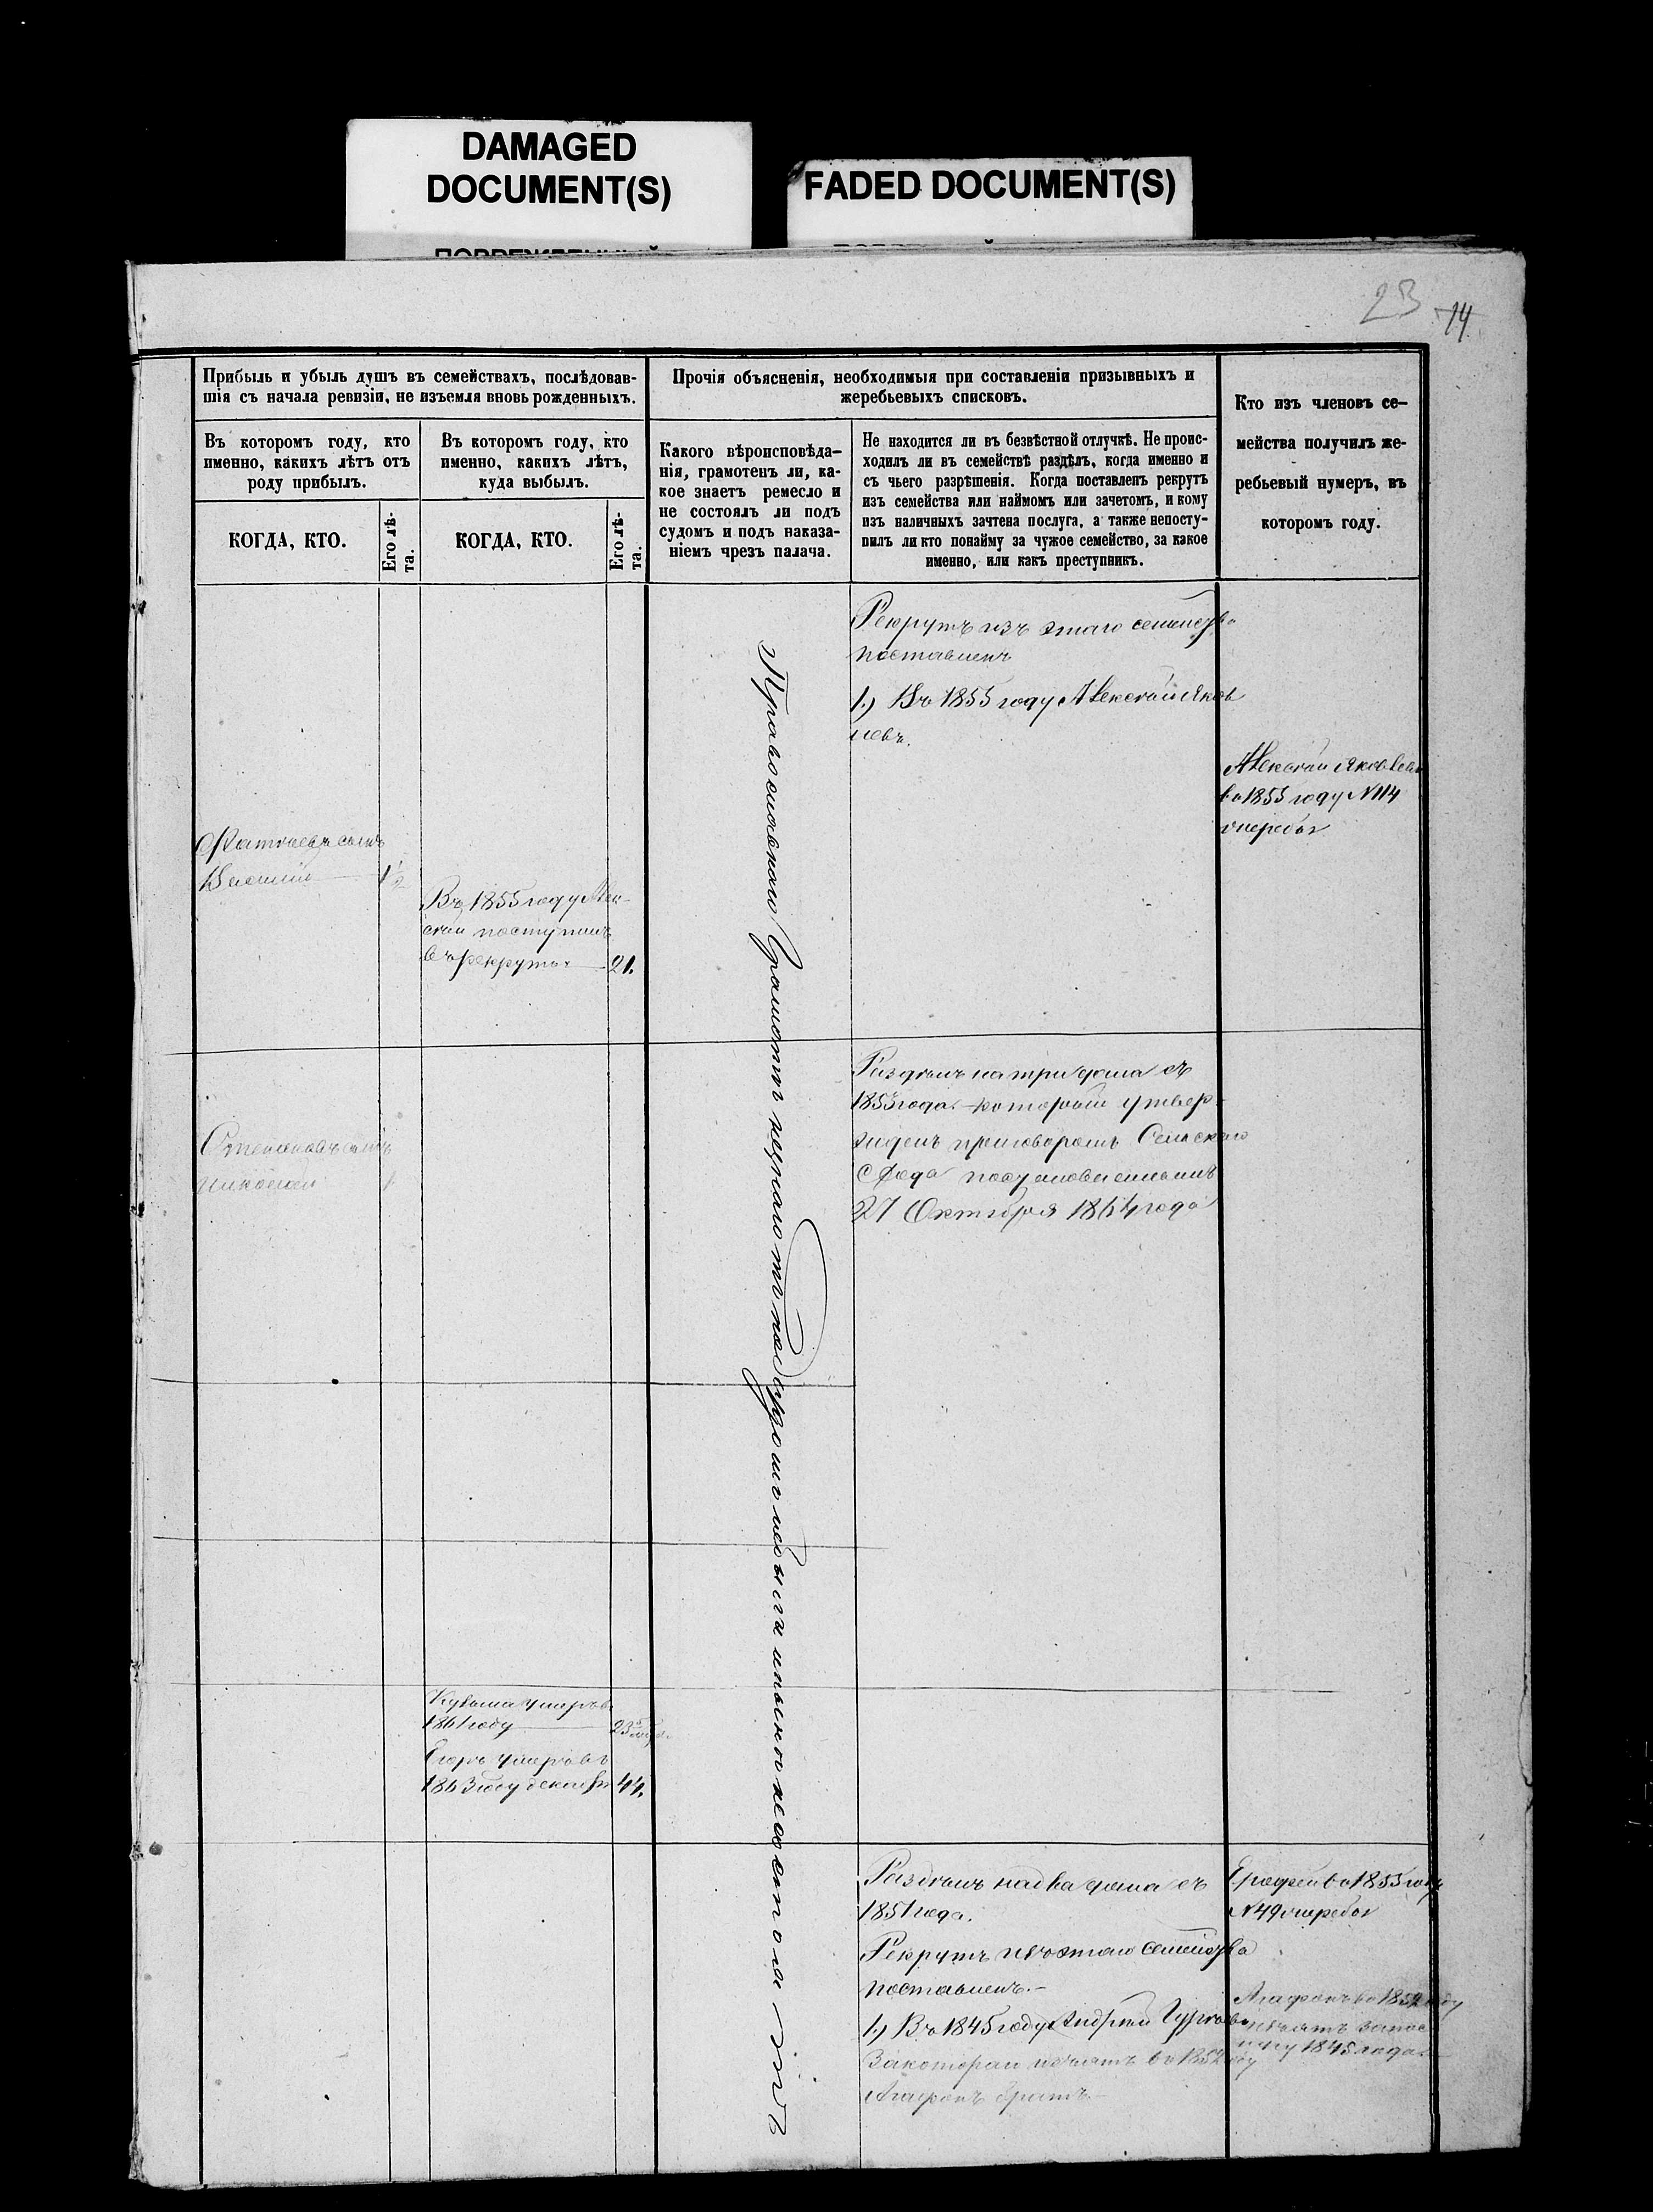 DAMAGED
DOCUMENT(S)
FADED DOCUMENT(S)
23
14
Прибыль и убыль душъ въ семействахъ, послѣдовав-
шія съ начала ревизіи, не изъемля вновь рожденныхъ.
Въ которомъ году, кто
именно, какихъ лѣтъ отъ
роду прибылъ.
КОГДА, КТО.
Его лѣ-
та.
Въ которомъ году, кто
именно, какихъ лѣтъ,
куда выбылъ.
КОГДА, КТО.
Его лѣ-
та.
Прочія объясненія, необходимыя при составленіи призывныхъ и
жеребьевыхъ списковъ.
Какого вѣроисповѣда-
нія, грамотенъ ли, ка-
кое знаетъ ремесло и
не состоялъ ли подъ
судомъ и подъ наказа-
ніемъ чрезъ палача.
Не находится ли въ безвѣстной отлучкѣ. Не проис-
ходилъ ли въ семействѣ раздѣлъ, когда именно и
съ чьего разрѣшенія. Когда поставленъ рекрутъ
изъ семейства или наймомъ или зачетомъ, и кому
изъ наличныхъ зачтена послуга, а также непосту-
пилъ ли кто понайму за чужое семейство, за какое
именно, или какъ преступникъ.
Кто изъ членовъ се-
мейства получилъ же-
ребьевый нумеръ, въ
которомъ году.
Рекрутъ изъ этаго семейства
поставленъ
1.) Въ 1855 году Алексѣй Яков
левъ.
Алексѣй Яковлевъ
въ 1855 году №114
жеребья
сынъ
Василій 1½
Въ 1855 году Алек-
сѣй поступилъ
въ рекруты 21.
Православнаго Грамотѣ незнаютъ под судомъ небыли
Раздѣлъ на три дома съ
1853 года который утвер-
жденъ приговоромъ Сельскаго
Схода
27 Октября 1864 года
Степановъ сынъ
Николай 1
умеръ въ
1861 году 23
Егоръ умеръ въ
1863 году декабр 44.
Раздѣлъ на два дома съ
1851 года.
Рекрутъ изъ этаго семейства
поставленъ.-
1.) Въ 1845 году Андрей
За котораго въ 1852 году
Агафонъ братъ
Ерофей въ 1855 году
№49 жеребья
Агафонъ въ 1852 году
1845 года